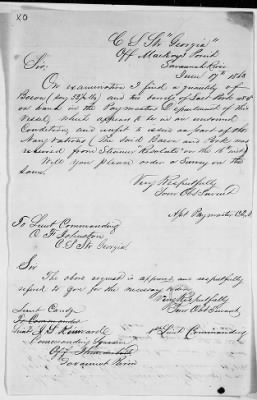 XO
C S Str "Georgia"
Off Mackays Point
Savannah River
June 17th 1863
Sir
On examination I find a quantity of
Bacon (say 331 lbs) and two barrels of Salt Pork
on hand in the Paymasters Department of this
Vessel, which appears to be in an unsound
Condition, and unfit to issue as part of the
Navy Rations (the said Bacon and Pork was
received from Steamer Resolute on the 16th inst)
Will you please order a Survey on the
same.
Very Respectfully
Your Obt Servant
Asst Paymaster C.S.N.
To Lieut Commanding
C S Str Georgia
Sir
The above request is approved and respectfully
referred to you for the necessary order
Very Respectfully
Your Obt Servant
1st Lieut Commanding
Lieut Comdg
To Commander
Commanding Squadron
Off
Savannah River